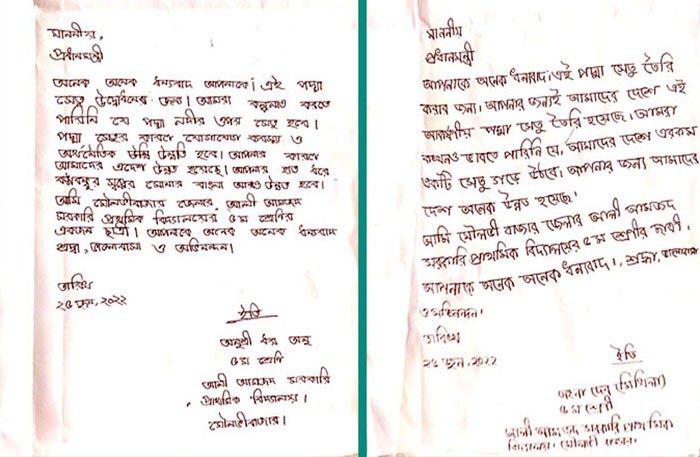 মাননীয়,
প্রধানমন্ত্রী
অনেক অনেক ধন্যবাদ আপনাকে। এই পদ্মা
সেতু উদ্বোধনের জন্য। আমরা কল্পনাও করতে
পারিনি যে পদ্মা নদীর ওপর সেতু হবে।
পদ্মা সেতুর কারণে যোগাযোগ ব্যবস্থা ও
অর্থনৈতিক উন্নতি হবে। আপনার কারণে
আমাদের এদেশ উন্নত হয়েছে। আপনার হাত ধরে
বঙ্গবন্ধুর সোনার বাংলা আরও উন্নত হবে।
আমি মৌলভীবাজার জেলার আলী আমজদ
সরকারি প্রাথমিক বিদ্যালয়ের ৫ম শ্রেণির
একজন ছাত্রী। আপনাকে অনেক অনেক ধন্যবাদ
শ্রদ্ধা, ভালোবাসা ও অভিনন্দন।
তারিখ
২৫ জুন, ২০২২
ইতি
৫ম শ্রেণি
আলী আমজদ সরকারি
প্রাথমিক বিদ্যালয়।
মৌলভীবাজার।
মাননীয়
প্রধানমন্ত্রী
আপনাকে অনেক ধন্যবাদ। এই পদ্মা সেতু তৈরি
করার জন্য। আপনার জন্যই আমাদের দেশে এই
আকর্ষণীয় পদ্মা সেতু তৈরি হয়েছে। আমরা
কখনও ভাবতে পারিনি যে, আমাদের দেশে এরকম
একটি সেতু গড়ে উঠবে। আপনার জন্য আমাদের
দেশ অনেক উন্নত হয়েছে।
আমি মৌলভী বাজার জেলার আলী আমজদ
সরকারি প্রাথমিক বিদ্যালয়ের ৫ম শ্রেণীর ছাত্রী।
আপনাকে অনেক অনেক ধন্যবাদ।, শ্রদ্ধা, ভালোবাসা
ও অভিনন্দন।
তারিখ
২৫ জুন, ২০২২
ইতি
(মিথিলা)
৫ম শ্রেণী
আলী আমজদ সরকারি প্রাথমিক
বিদ্যালয়। মৌলভী বাজার।